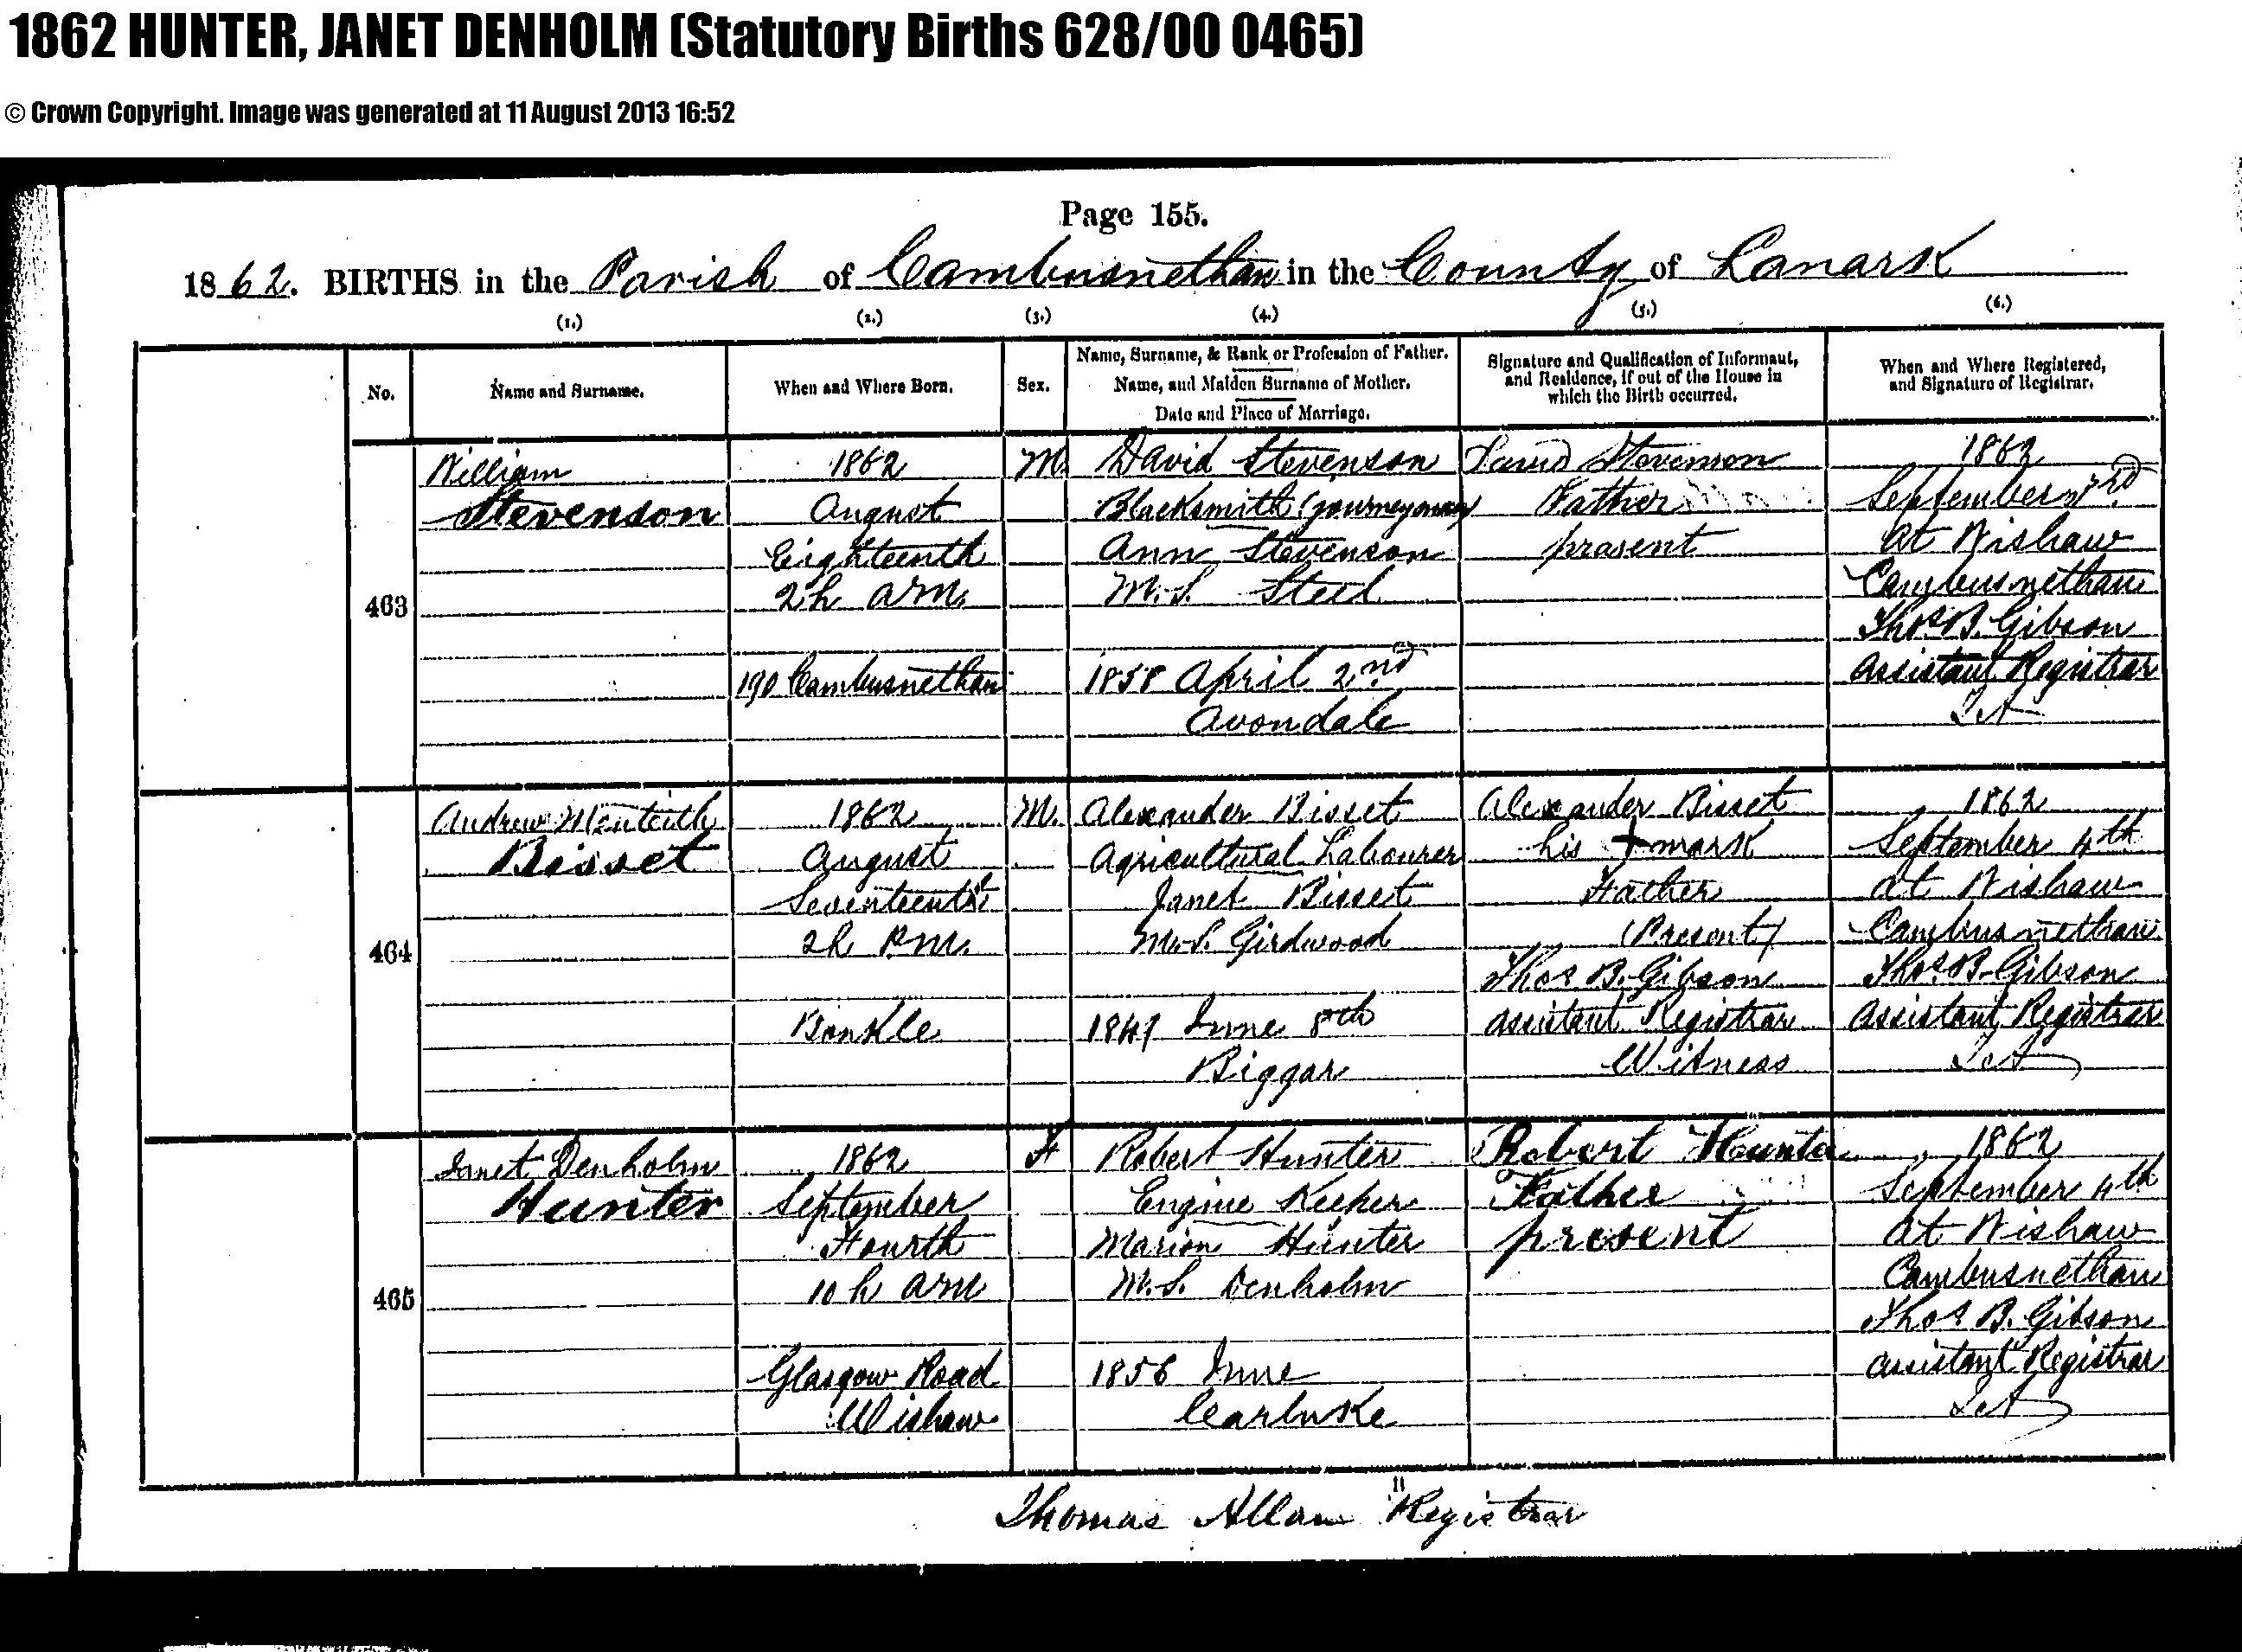 1862 HUNTER, JANET DENHOLM (Statutory Births 628/00 0465)
© Crown Copyright. Image was generated at 11 August 2013 16:52
Page 155.
1862. BIRTHS in the Parish of Cambusnethan in the County of Lanark
(1.) (2.) (3.) (4.) (5.) (6.)
No.
Name and Surname.
When and Where Born.
Sex.
Name, Surname, & Rank or Profession of Father.
Name, and Maiden Surname of Mother.
Date and Place of Marriage.
Signature and Qualification of Informant,
and Residence, if out of the House in
which the Birth occurred.
When and Where Registered,
and Signature of Registrar.
463
William
Stevenson
1862
August
Eighteenth
2h am.
190 Cambusnethan
M.
David Stevenson
Blacksmith (journeyman)
Ann Stevenson
M.S. Steel
1858 April 2nd
Avondale
David Stevenson
Father
present
1862
September
at Wishaw
Cambusnethan
Thos B. Gibson
Assistant Registrar
464
Andrew Menteith
Bisset
1862
August
Seventeenth
2h P.M.
Bonkle
M.
Alexander Bisset
Agricultural Labourer
Janet Bisset
M.S. Girdwood
1847 June 8th
Biggar
Alexander Bisset
his + mark
Father
(Present)
Thos B. Gibson
Assistant Registrar
Witness
1862
September 4th
at Wishaw
Cambusnethan
Thos B. Gibson
Assistant Registrar
465
Janet Denholm
Hunter
1862
September
Fourth
10 h am
Glasgow Road
Wishaw
F
Robert Hunter
Engine Keeper
Marion Hunter
M.S. Denholm
1856 June
Carluke
Robert Hunter
Father
present
1862
September 4th
at Wishaw
Cambusnethan
Thos B. Gibson
Assistant Registrar
Thomas Allan Registrar